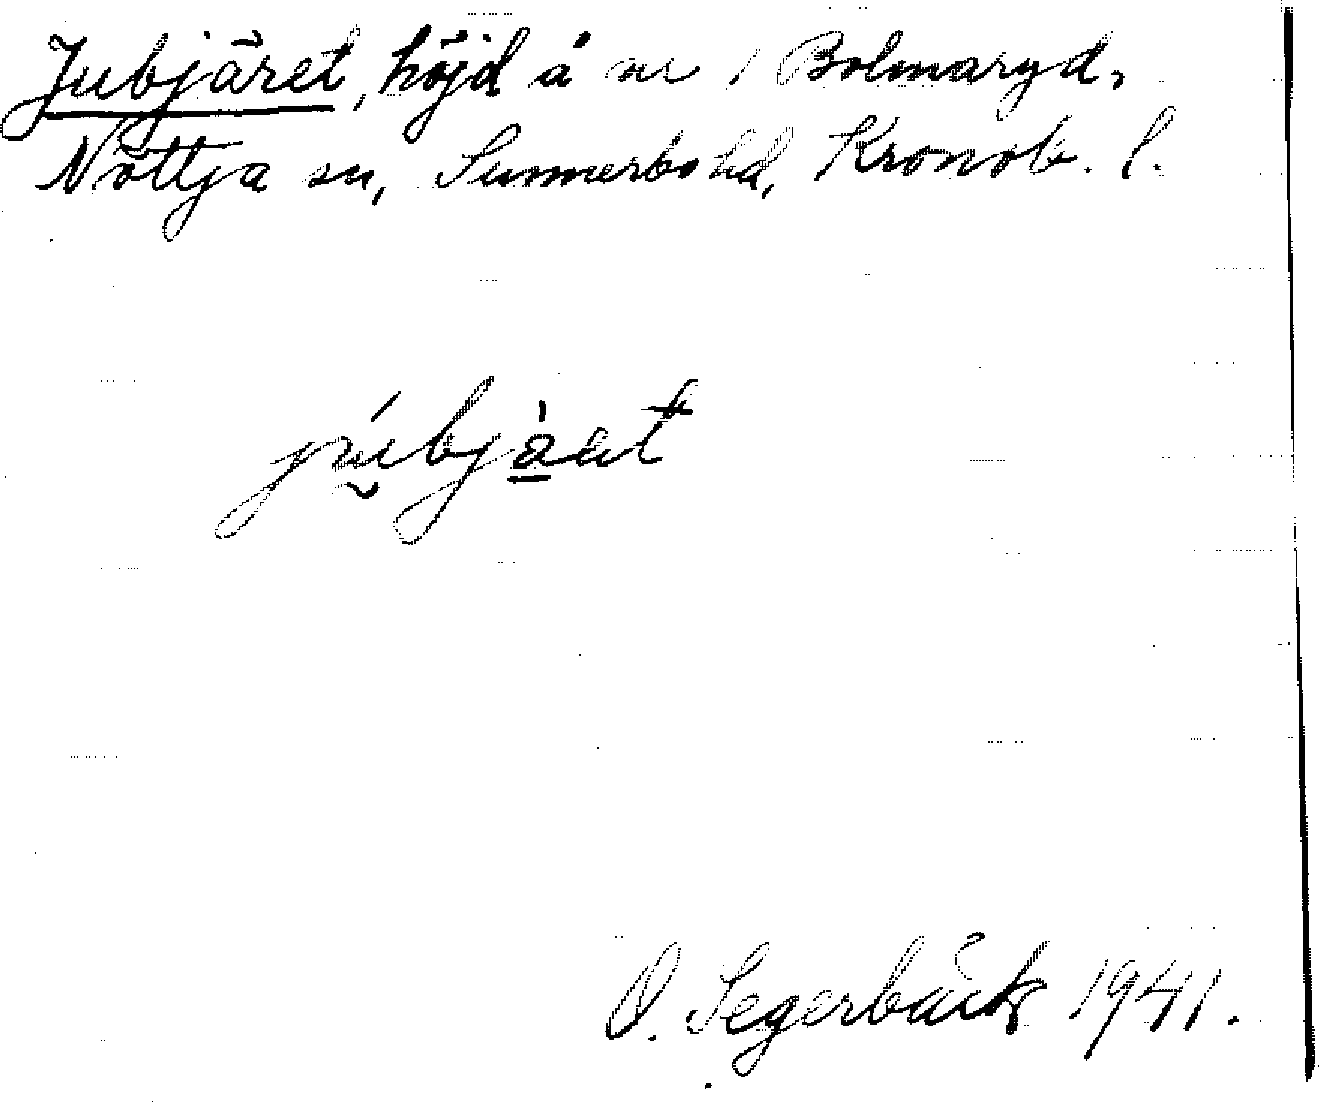 Jubjäret, höjd å nr 1 Bolmaryd,
Nöttja sn, Sunnerbo hd, Kronob. l.
O. Segerbäck 1941.